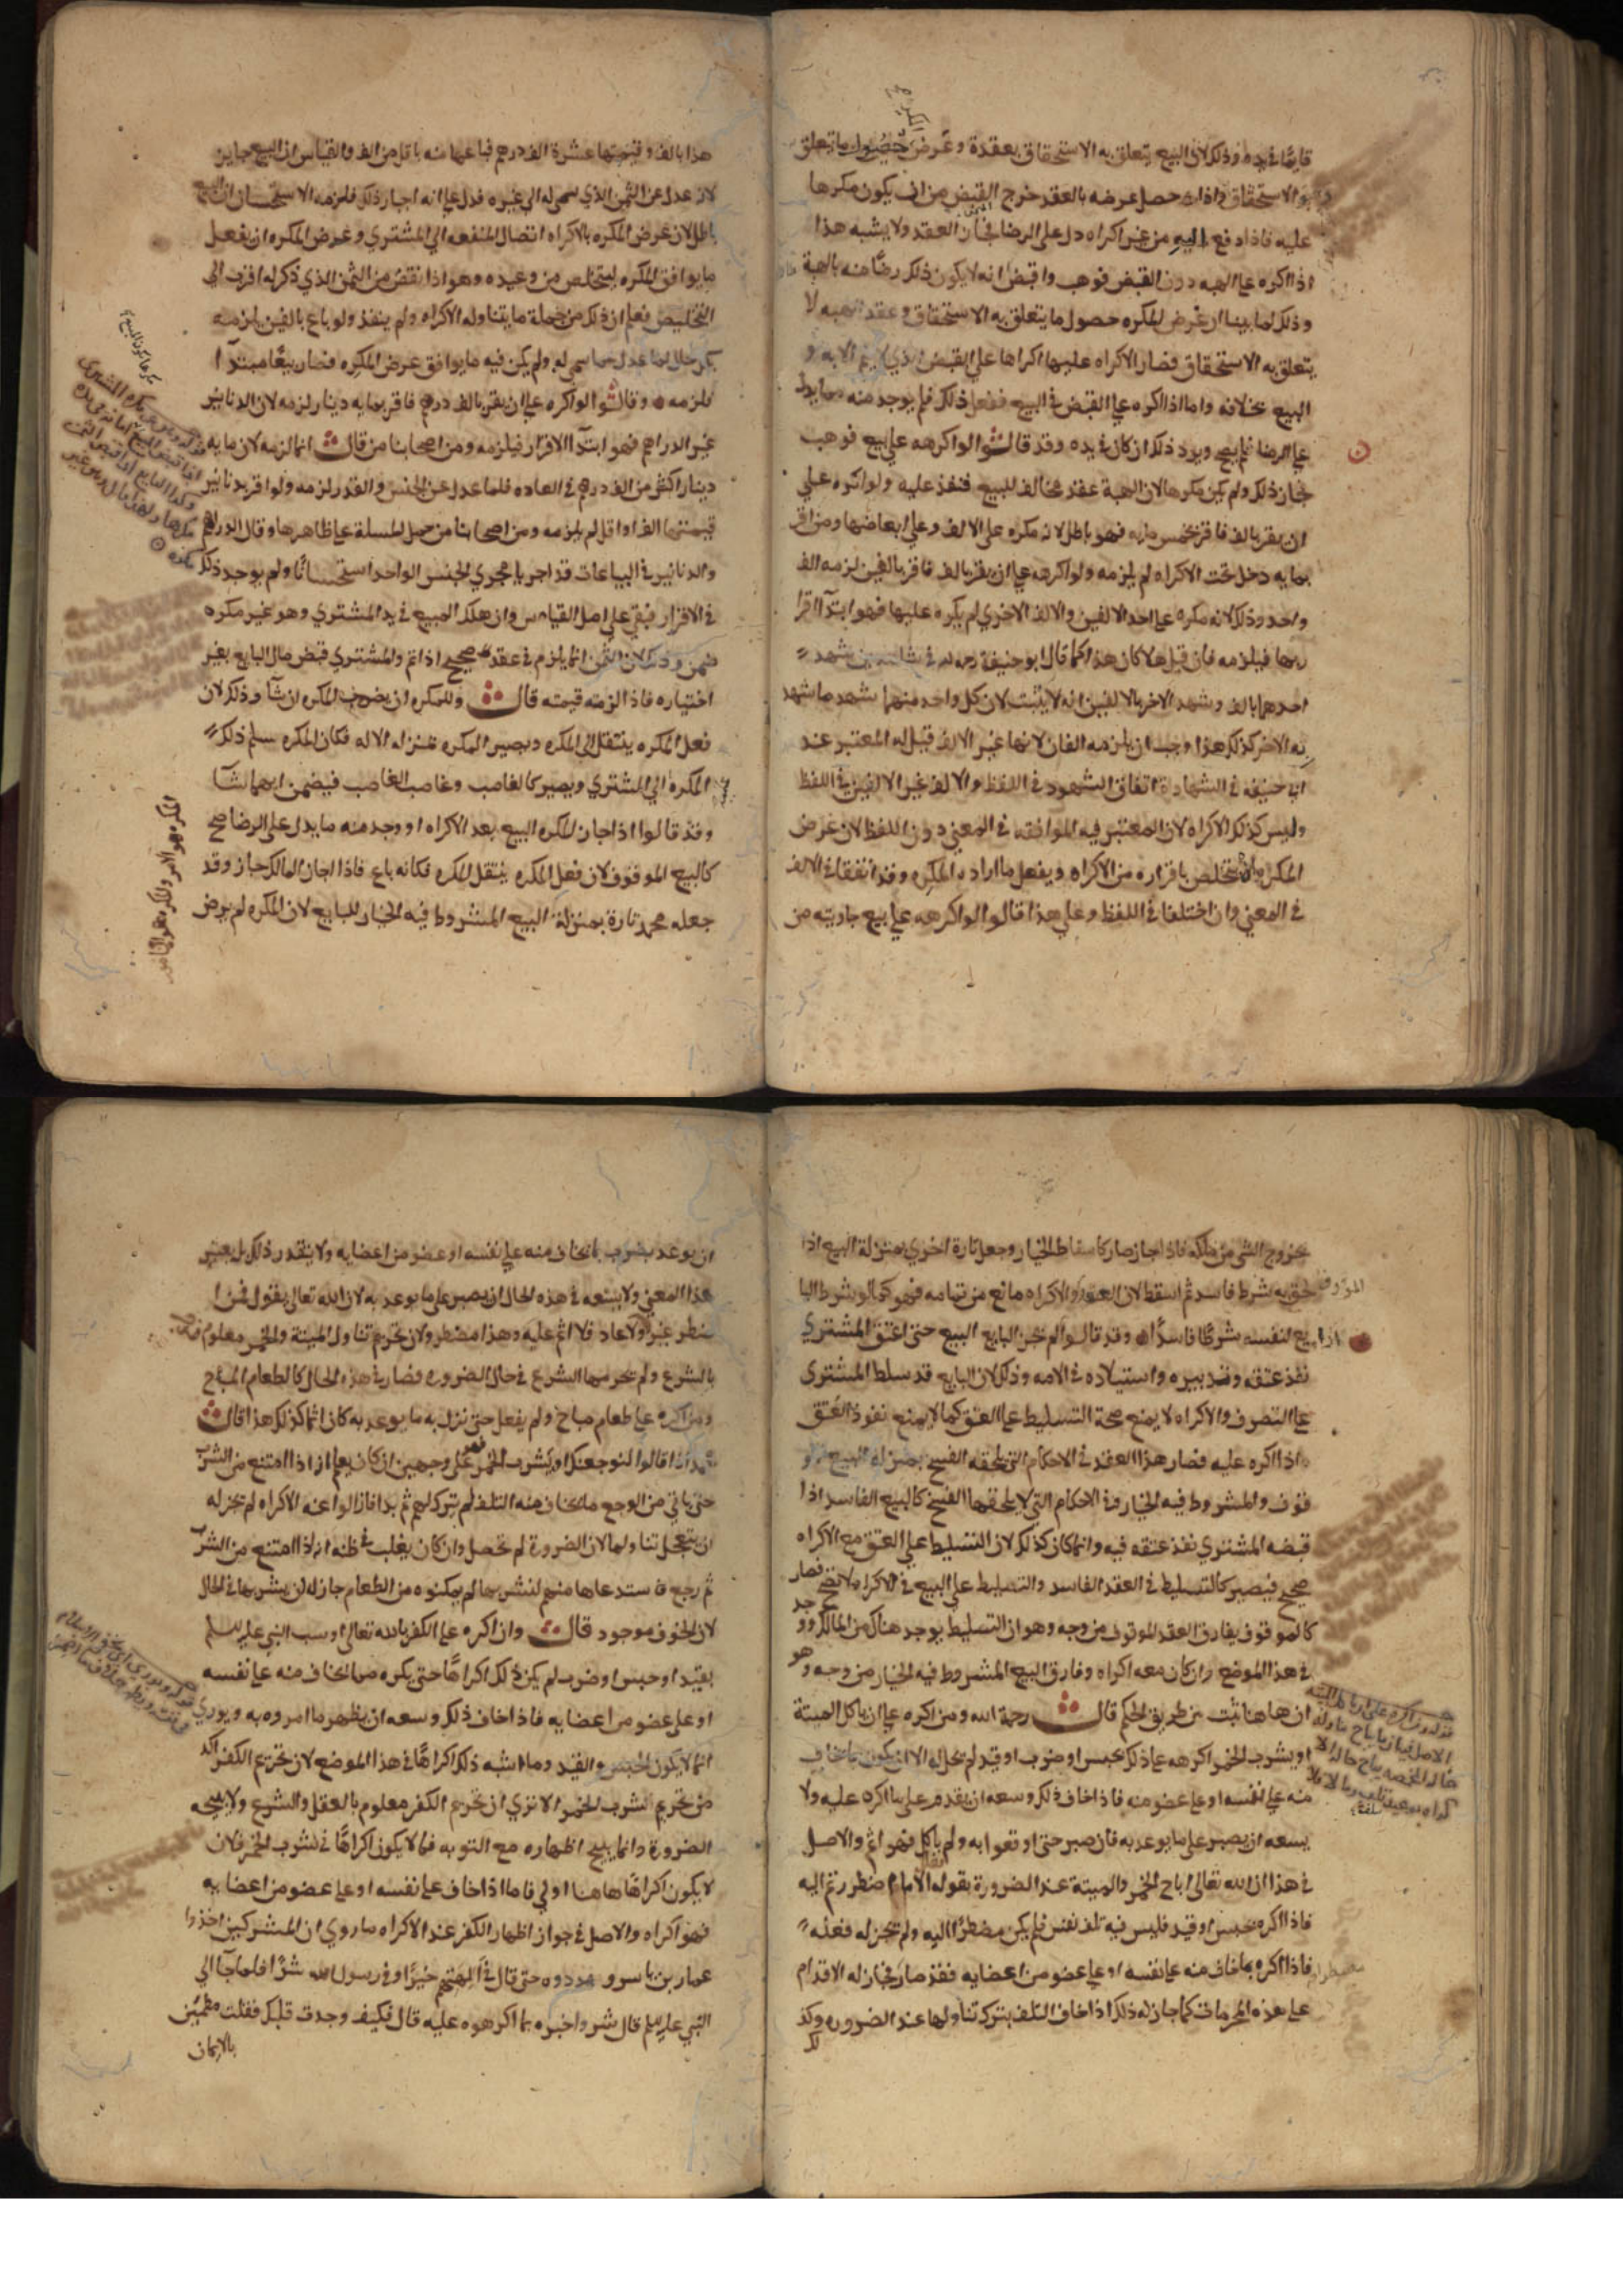 قايمًا في يده وذلك لان البيع يتعلق به الاستحقاق بعقده وغرض حصول ما تعلق
به الاستحقاق فاذا حصل غرضه بالعقد خرج القبض من ان يكون مكرها
عليه فاذا دفع اليه من غير اكراه دل على الرضا في العقد ولا يشبه هذا
اذا اكره على الهبه دون القبض فوهب واقبض انه لا يكون ذلك رضًا منه بالهبة
وذلك لما بينا ان غرض المكره حصول ما يتعلق به الاستحقاق وعقد الهبه لا
يتعلق به الاستحقاق فصار الاكراه عليها اكراها على القبض الذي لا يتم الا به و
البيع بخلافه واما اذا اكره على القبض في البيع ففعل ذلك فلم يوجد منه ما يدل
على الرضا فلم يصح ويرد ذلك ان كان في يده وقد قالوا لو اكرهه على بيع فوهب
جاز ذلك ولم يكن مكرها لان الهبة عقد مخالف للبيع فنفذ عليه ولو اكره على
ان يقر بالف فاقر بخمس مايه فهو باطل لانه مكره على الالف وعلى ابعاضها ومن اقر
بما يه دخل تحت الاكراه لم يلزمه ولو اكرهه على ان يقر بالف فاقر بالفين لزمه الف
واحد وذلك لانه مكره على احد الالفين والالف الاخري لم يكره عليها فهو ابتدآ اقرا
ر بها فيلزمه فان قيل هلا كان هذا كما قال ابو حنيفة رحمه الله في شاهدين شهد
احدهما بالف وشهد الاخر بالالفين انه لا يثبت لان كل واحد منهما شهد ما شهد
به الاخر كذلك هذا وجب ان يلزمه الفان لانها غير الالف قيل له المعتبر عند
ابي حنيفه في الشهادة اتفاق الشهود في اللفظ والالف غير الالفين في اللفظ
وليس كذلك الاكراه لان المعتبر فيه الموافقه في المعني دون اللفظ لان غرض
المكره ان يتخلص باقراره من الاكراه ويفعل ما اراده المكره وقد اتفقا في الالف
في المعني وان اختلفا في اللفظ وعلي هذا قالوا لو اكرهه علي بيع جاريته من
هذا بالف وقيمتها عشرة الف درهم فباعها منه باقل من الف والقياس ان البيع جايز
لانه عدل عن الثمن الذي سمي له الي غيره فدل علي انه اجاز ذلك فلزمه الاستحسان ان البيع
باطل لان غرض المكره بالاكراه اتصال المنفعه الي المشتري وغرض المكره ان يفعل
ما يوافق المكره ليتخلص من وعيده وهو اذا نقص من الثمن الذي ذكر له اقرب الي
التخليص فعلم ان ذلك من جملة ما يتناوله الاكراه ولم ينفذ ولو باع بالفين لزمه
بكل حال لما عدل عما سمي له ولم يكن فيه ما يوافق غرض المكره فصار بيعًا مبتدًا
فلزمه وقالوا لو اكره علي ان يقر بالف درهم فاقر بمايه دينار لزمه لان الدنانير
غير الدراهم فهو ابتدآ الاقرار فيلزمه ومن اصحابنا من قال انما لزمه لان مايه
دينار اكثر من الف درهم في العاده فلما عدل عن الجنس والقدر لزمه ولو اقر بدنانير
قيمتها الف او اقل لم يلزمه ومن اصحابنا من حمل المسلة علي ظاهرها وقال الدراهم
والدنانير في البياعات قد اجريا مجري الجنس الواحد استحسانًا ولم يوجد ذلك
في الاقرار فبقي علي اصل القياس وان هلك المبيع في يد المشتري وهو غير مكره
ضمن وذلك لان الثمن انما يلزم في عقد صحيح اذا تم والمشتري قبض مال البايع بغير
اختياره فاذا لزمته قيمته قال وللمكره ان يضمن المكره ان شآ وذلك لان
فعل المكره ينتقل الي المكره ويصير المكره بمنزله الاله فكان المكره سلم ذلك
المكره الي المشتري ويصير كالغاصب وغاصب الغاصب فيضمن ايهما شآ
وقد قالوا اذا اجاز المكره البيع بعد الاكراه او وجد منه ما يدل علي الرضا صح
كالبيع الموقوف لان فعل المكره ينتقل للمكره فكانه باع فاذا اجاز المالك جاز وقد
جعله محمد تارة بمنزلة البيع المشروط فيه الخيار للبايع لان المكره لم يرض
المكره هو الامر والمكره هو المامور
بخروج الشي من ملكه فاذا اجاز صار كاسقاط الخيار وجعل تارة اخري بمنزلة البيع اذا
لحق به شرط فاسد ثم اسقط لان العقد والاكراه مانع من تمامه فهو كما لو شرط البا
يع لنفسه شرطًا فاسدًا وقد قالوا لم يجز البايع البيع حتي اعتق المشتري
نفذ عتقه وتدبيره واستيلاده في الامه وذلك لان البايع قد سلط المشتري
علي التصرف والاكراه لا يمنع صحة التسليط علي العتق كما لا يمنع نفوذ العتق
اذا اكره عليه فصار هذا العقد في الاحكام التي يلحقه الفسخ بمنزلة البيع المو
قوف والمشروط فيه الخيار وفي الاحكام التي لا يلحقها الفسخ كالبيع الفاسد اذا
قبضه المشتري نفذ عتقه فيه وانما كان كذلك لان التسليط علي العتق مع الاكراه
صحيح فيصير كالتسليط في العقد الفاسد والتسليط علي البيع في الاكراه لا يصح فصار
كالموقوف يفارق العقد الموقوف من وجه وهو ان التسليط يوجد هناك من المالك ووجد
في هذا الموضع وان كان معه اكراه وفارق البيع المشروط فيه الخيار من وجه وهو
ان هاهنا ثبت من طريق الحكم قال رحمة الله ومن اكره علي ان ياكل الميتة
او يشرب الخمر اكرهه علي ذلك بحبس او ضرب او قيد لم يحل له الا ان يكون بما يخاف
منه علي نفسه او علي عضو منه فاذا خاف ذلك وسعه ان يقدم علي ما اكره عليه ولا
يسعه ان يصبر علي ما يوعد به فان صبر حتي اوقعوا به ولم ياكل فهو اثم والاصل
في هذا ان الله تعالي اباح الخمر والميتة عند الضرورة بقوله الا ما اضطررتم اليه
فاذا اكره بحبس او قيد فليس فيه تلف نفس فلم يكن مضطرًا اليه ولم يجز له فعله
فاذا اكره بما خاف منه علي نفسه او علي عضو من اعضايه فقد صار فجاز له الاقدام
علي هذه المحرمات كما جاز له ذلك اذا خاف التلف بترك تناولها عند الضروره وكذ
لك
ان يوعد بضرب يخاف منه علي نفسه او عضو من اعضايه ولا يتقدر ذلك بل يعتبر
هذا المعني ولا يسعه في هذه الحال ان يصبر علي ما يوعد به لان الله تعالي يقول فمن ا
ضطر غير باغ ولا عاد فلا اثم عليه وهذا مضطر ولان تحريم تناول الميتة والخمر معلوم
بالشرع ولم يحرمها الشرع في حال الضروره فصار في هذه الحال كالطعام المباح
ومن اكره علي طعام مباح ولم يفعل حتي نزل به ما يوعد به كان اثما كذلك هذا قال
محمد اذا قالوا لنوجعنك او يشرب الخمر فهو علي وجهين ان كان يعلم انه اذا امتنع من الشرب
حتي ياتي من الوجع ما يخاف منه التلف لم يتركه ثم بدا فازالوا عنه الاكراه لم يجز له
ان يتعجل تناولها لان الضرورة لم تحصل وان كان يغلب في ظنه انه اذا امتنع من الشرب
ثم رجع فاستدعاها منهم لشربها لم يمكنوه من الطعام جاز له ان يشربها في الحال
لان الخوف موجود قال وان اكره علي الكفر بالله تعالي او سب النبي عليه السلم
بقيد او حبس او ضرب لم يكن ذلك اكراهًا حتي يكره بما يخاف منه علي نفسه
او علي عضو من اعضايه فاذا خاف ذلك وسعه ان يظهر ما امروه به ويوري
انما لا يكون الحبس والقيد وما اشبه ذلك اكراهًا في هذا الموضع لان تحريم الكفر اكد
من تحريم شرب الخمر الا تري ان تحريم الكفر معلوم بالعقل والشرع ولا يبيحه
الضرورة وانما يبيح اظهاره مع التوبه فما لا يكون اكراهًا في شرب الخمر فلان
لا يكون اكراهًا هاهنا اولي فاما اذا خاف علي نفسه او علي عضو من اعضايه
فهو اكراه والاصل في جواز اظهار الكفر عند الاكراه ما روي ان المشركين اخذوا
عمار بن ياسر و حتي قال في الهتهم خيرًا وفي رسول الله شرًا فلما جآ الي
النبي عليه السلم قال شر واخبره بما اكرهوه عليه قال فكيف وجدت قلبك فقلت مطمئن
بالايمان